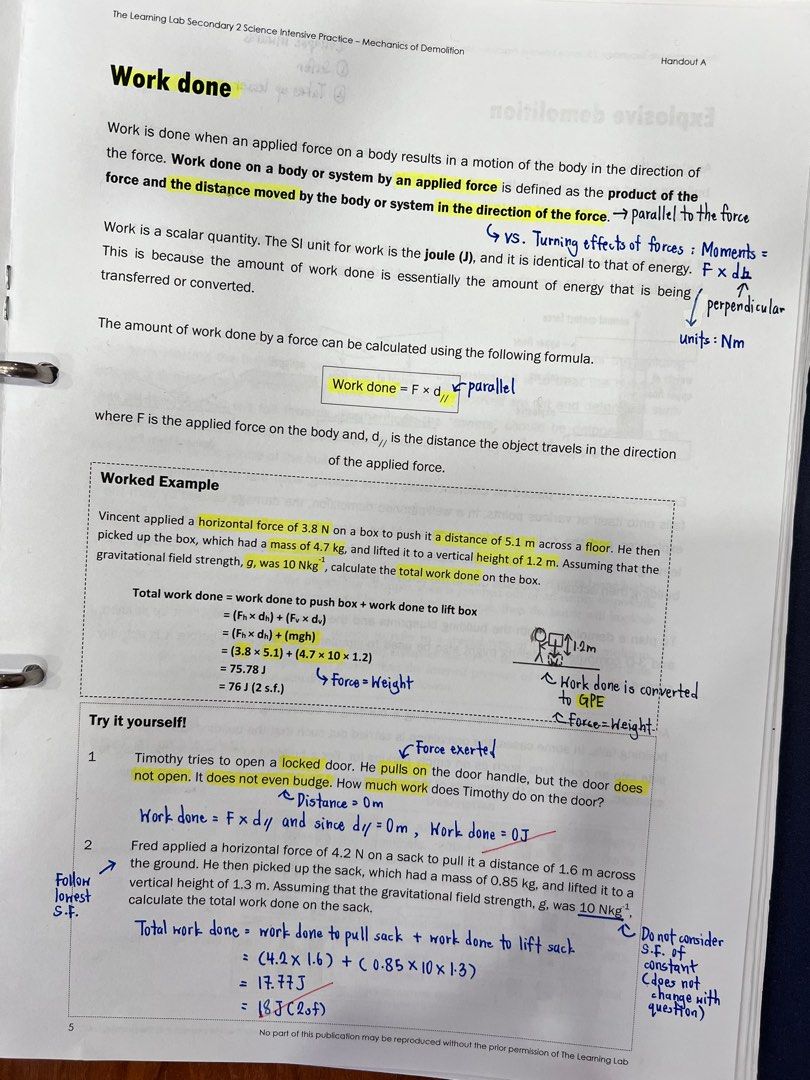 The Learning Lab Secondary 2 Science Intensive Practice – Mechanics of Demolition
Handout A
Work done
Work is done when an applied force on a body results in a motion of the body in the direction of
the force. Work done on a body or system by an applied force is defined as the product of the
force and the distance moved by the body or system in the direction of the force. → parallel to the force
↳ vs. Turning effects of forces : Moments =
Work is a scalar quantity. The SI unit for work is the joule (J), and it is identical to that of energy. F x d⊥
This is because the amount of work done is essentially the amount of energy that is being
perpendicular
transferred or converted.
units : Nm
The amount of work done by a force can be calculated using the following formula.
Work done = F × d// parallel
where F is the applied force on the body and, d// is the distance the object travels in the direction
of the applied force.
Worked Example
Vincent applied a horizontal force of 3.8 N on a box to push it a distance of 5.1 m across a floor. He then
picked up the box, which had a mass of 4.7 kg, and lifted it to a vertical height of 1.2 m. Assuming that the
gravitational field strength, g, was 10 Nkg⁻¹, calculate the total work done on the box.
Total work done = work done to push box + work done to lift box
= (Fh × dh) + (Fv × dv)
= (Fh × dh) + (mgh)
= (3.8 × 5.1) + (4.7 × 10 × 1.2)
= 75.78 J
= 76 J (2 s.f.)
↳ Force = Weight
1.2m
Work done is converted
to GPE
Force = Weight
Try it yourself!
Force exerted
1 Timothy tries to open a locked door. He pulls on the door handle, but the door does
not open. It does not even budge. How much work does Timothy do on the door?
Distance = 0m
Work done = F x d// and since d// = 0m, Work done = 0J
2 Fred applied a horizontal force of 4.2 N on a sack to pull it a distance of 1.6 m across
the ground. He then picked up the sack, which had a mass of 0.85 kg, and lifted it to a
vertical height of 1.3 m. Assuming that the gravitational field strength, g, was 10 Nkg⁻¹,
calculate the total work done on the sack.
Follow
lowest
S.F.
Total work done = work done to pull sack + work done to lift sack
= (4.2 x 1.6) + (0.85 x 10 x 1.3)
= 17.77J
= 18J (2sf)
Do not consider
S.F. of
constant
(does not
change with
question)
5
No part of this publication may be reproduced without the prior permission of The Learning Lab